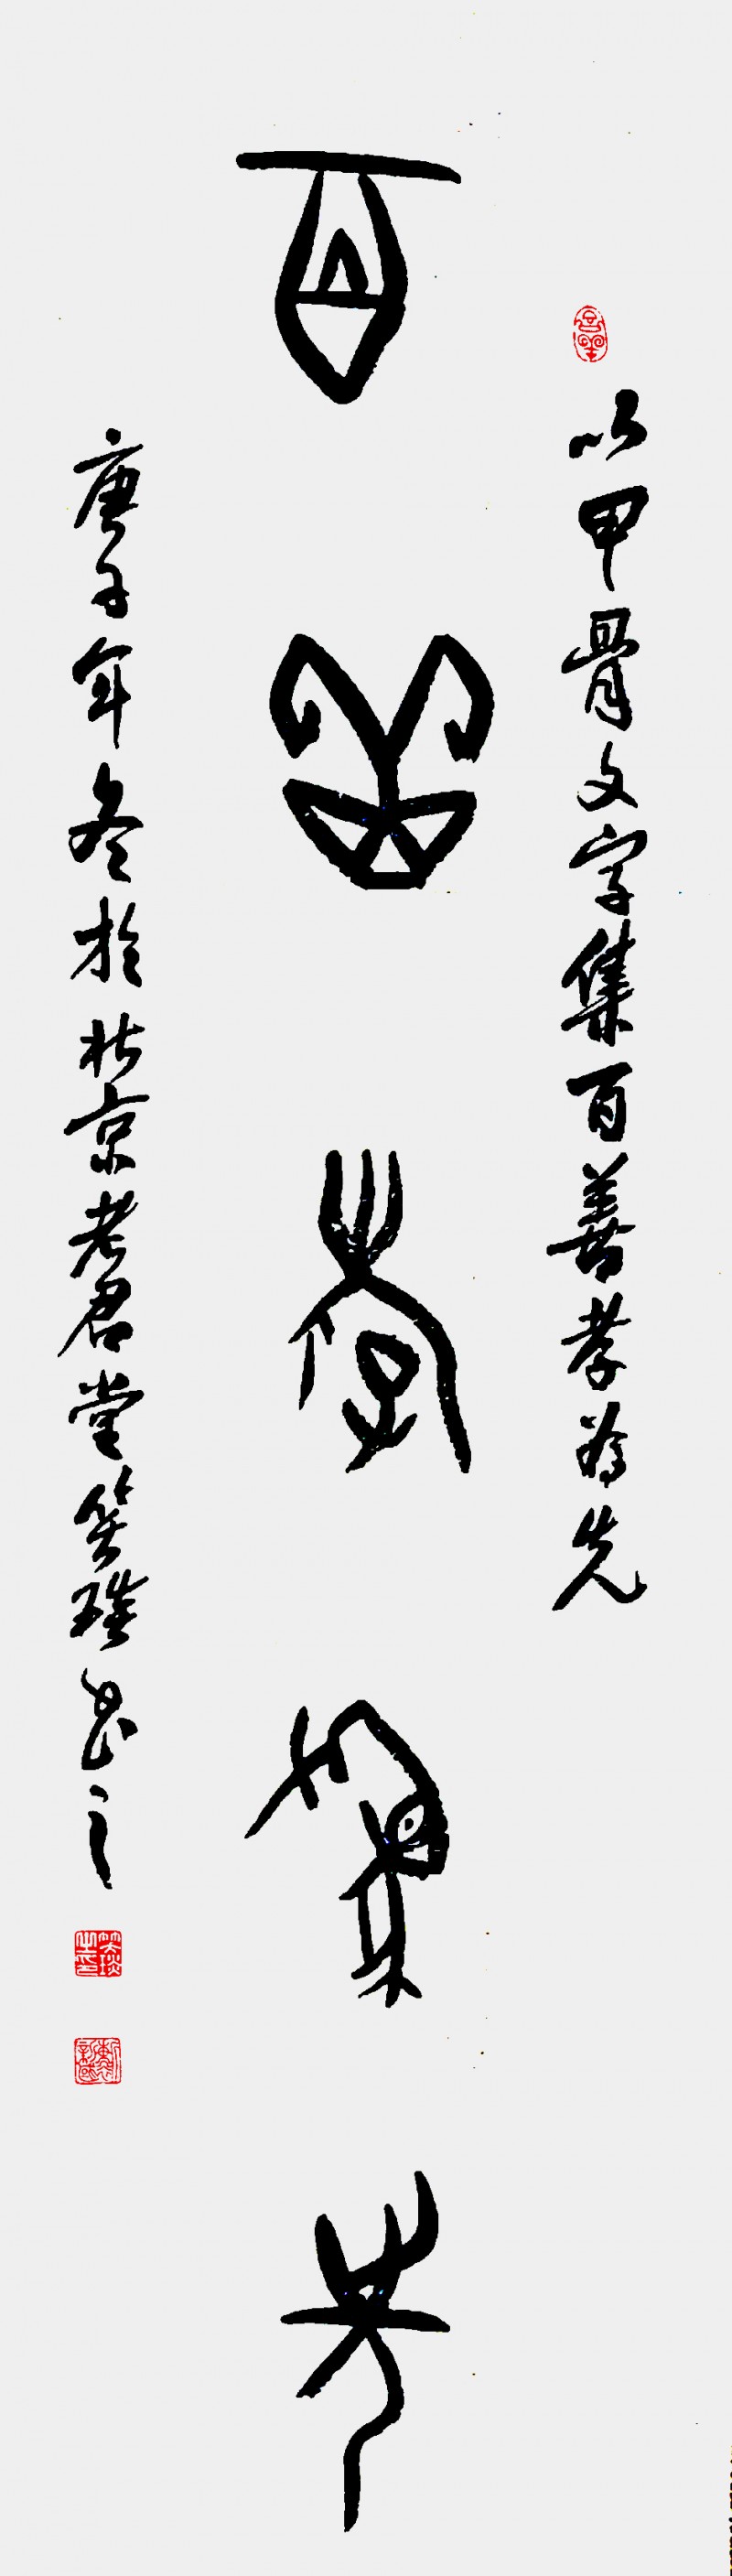 以甲骨文字集百善孝为先
百善孝為先
庚子年冬於北京老君堂笑琰书之